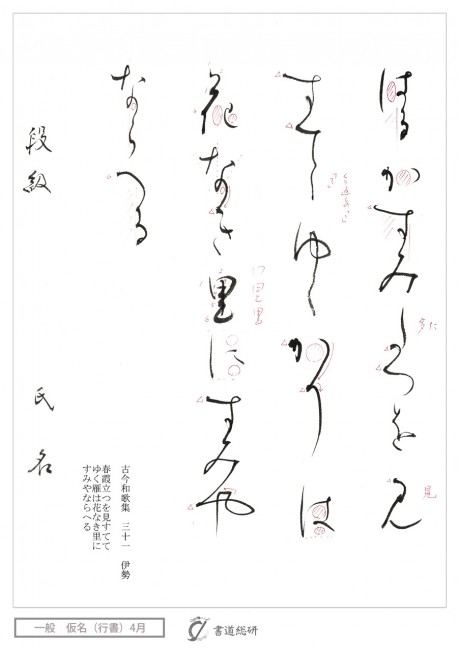 はるかすみたつを見
すてゝゆくかりは
花なき里にすみや
ならへる
段級　氏名
古今和歌集　三十一　伊勢
春霞立つを見すてて
ゆく雁は花なき里に
すみやならへる
一般　仮名（行書）4月
書道総研